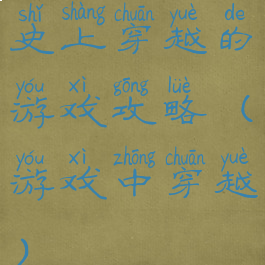 shǐ shàng chuān yuè de
史上穿越的
yóu xì gōng lüè
游戏攻略（
yóu xì zhōng chuān yuè
游戏中穿越
）